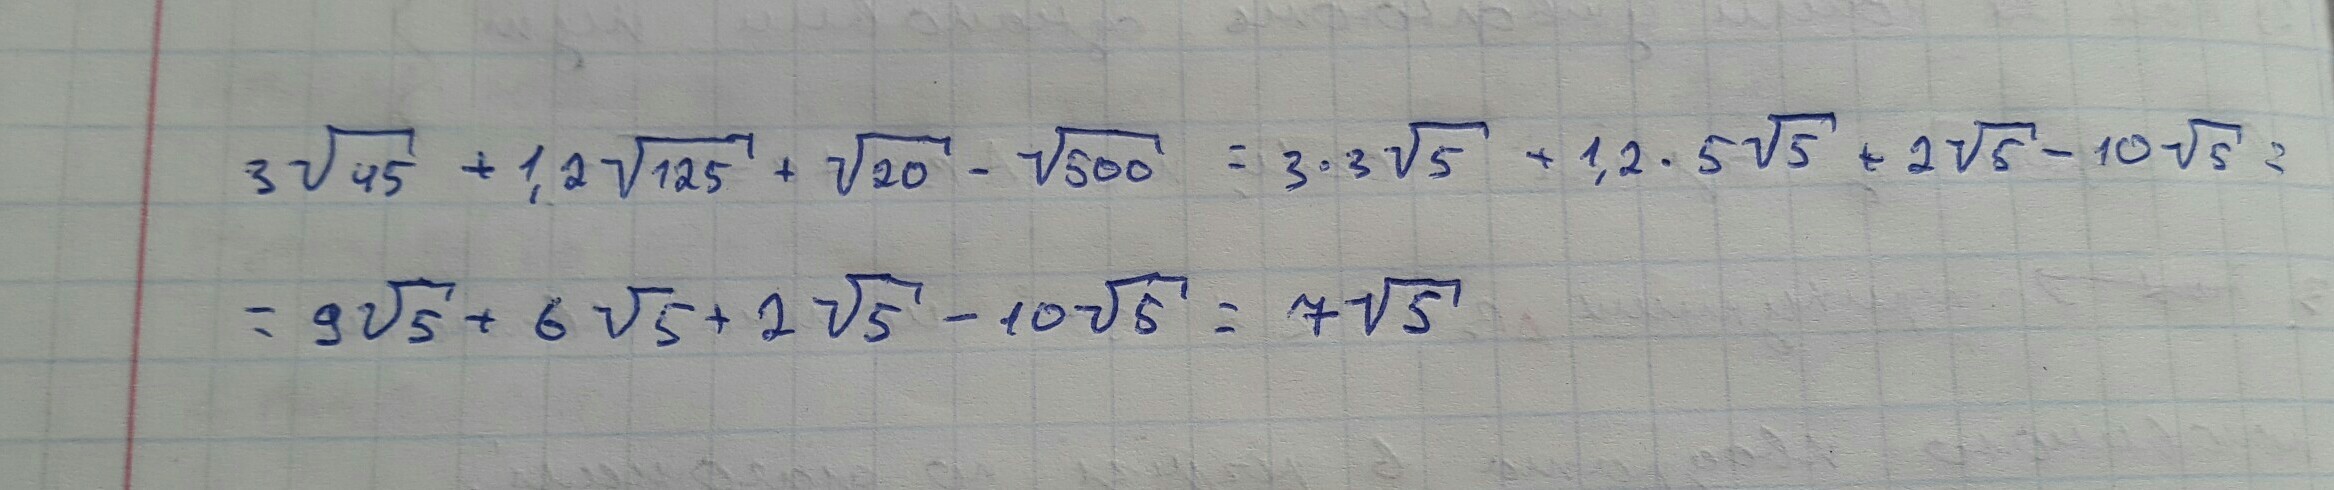 3√45 + 1,2√125 + √20 - √500 = 3·3√5 + 1,2·5√5 + 2√5 - 10√5 =
= 9√5 + 6√5 + 2√5 - 10√5 = 7√5